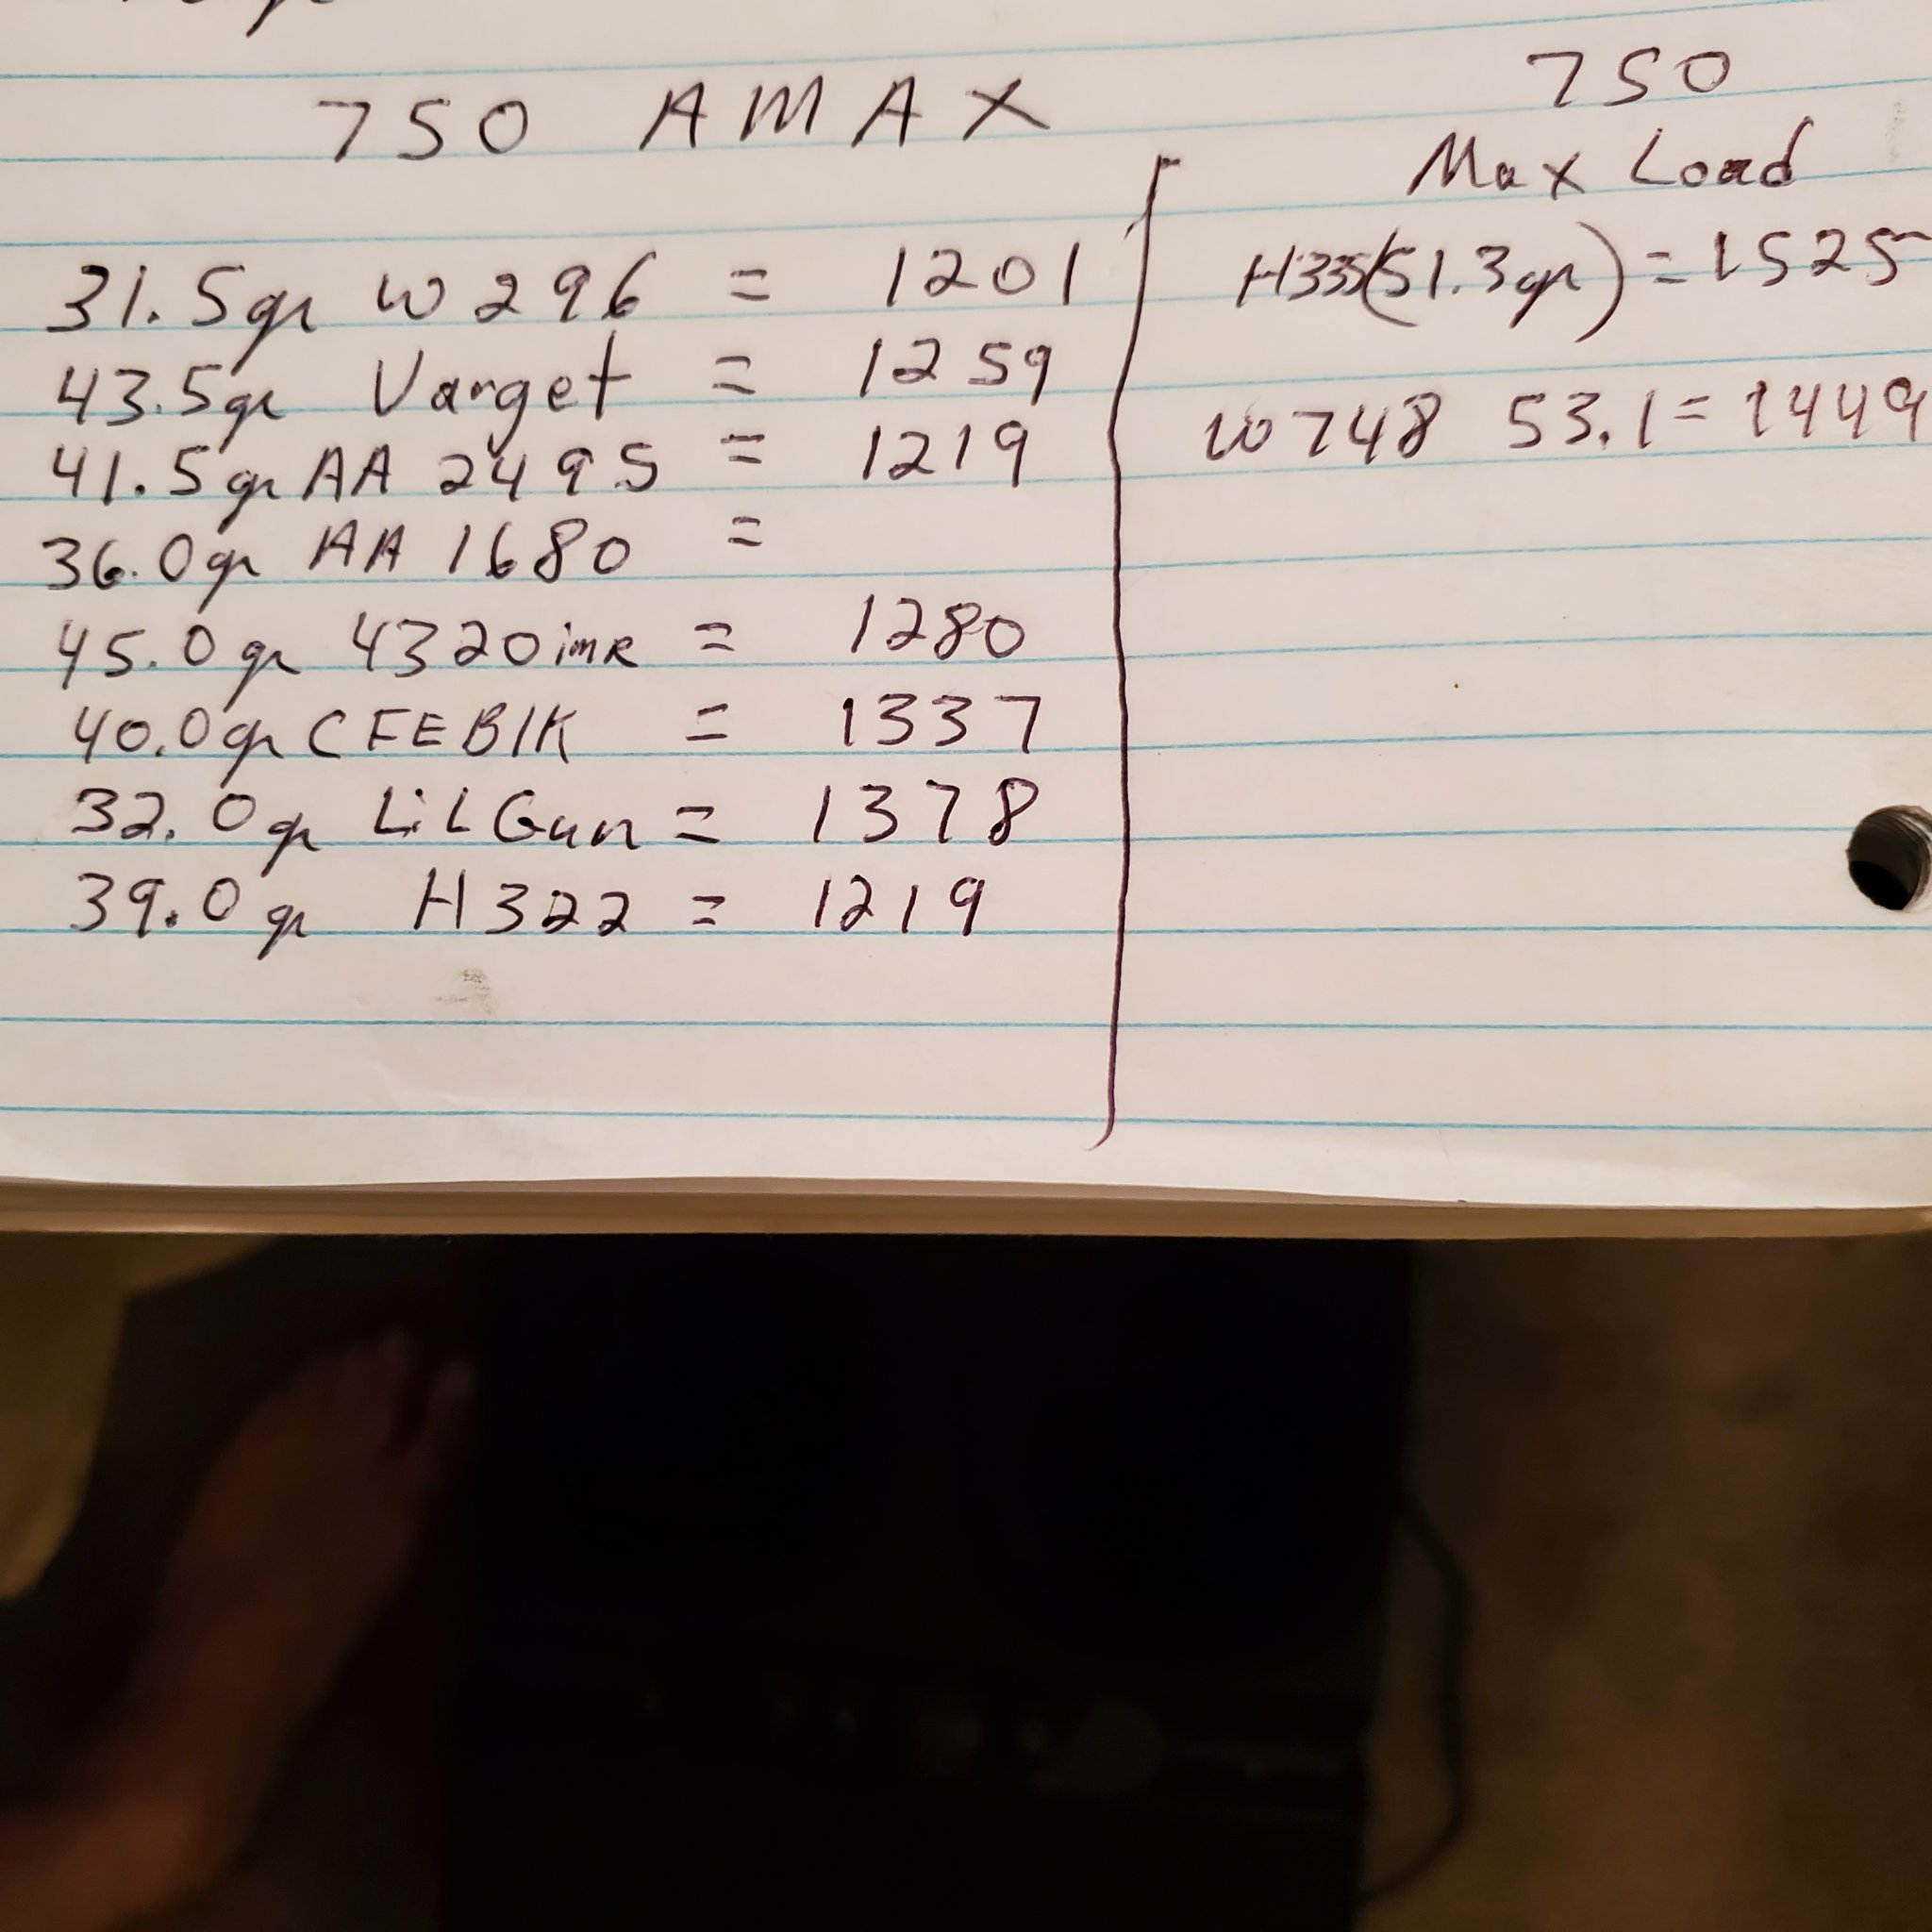 750 AMAX
31.5gr W296 = 1201
43.5gr Varget = 1259
41.5gr AA 2495 = 1219
36.0gr AA 1680 =
45.0gr 4320imR = 1280
40.0gr CFEBlK = 1337
32.0gr LiL Gun = 1378
39.0gr H322 = 1219
750
Max Load
H335(51.3gr) = 1525
W748 53.1 = 1449